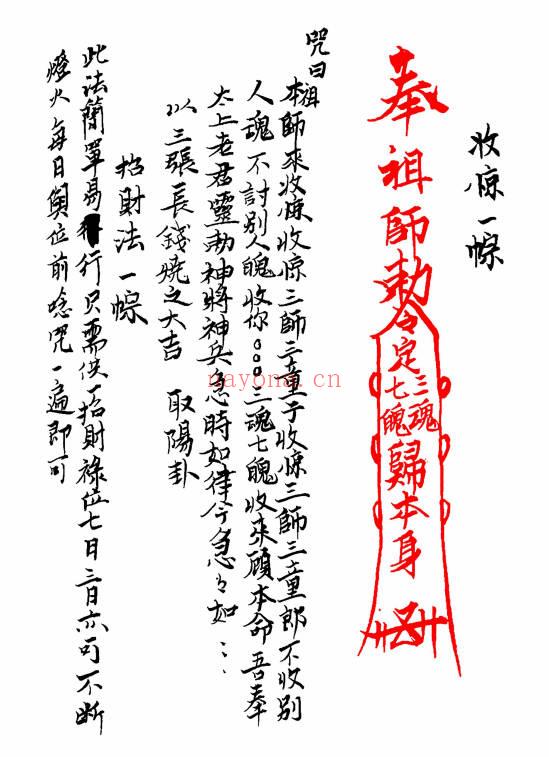 收惊一
奉祖師勅令定三魂七魄歸本身
咒曰
本祖師來收惊收惊三師三童子收惊三師三童郎不收别
人魂不討别人魄收你○○○三魂七魄收來顧本命吾奉
太上老君靈勅神將神兵急時如律令急々如⋯
以三張長錢燒之大吉 取陽卦
招財法一
此法簡單易行只需供一招財祿位七日三日亦可不断
燈火每日與位前唸咒一遍即可
nayona.cn